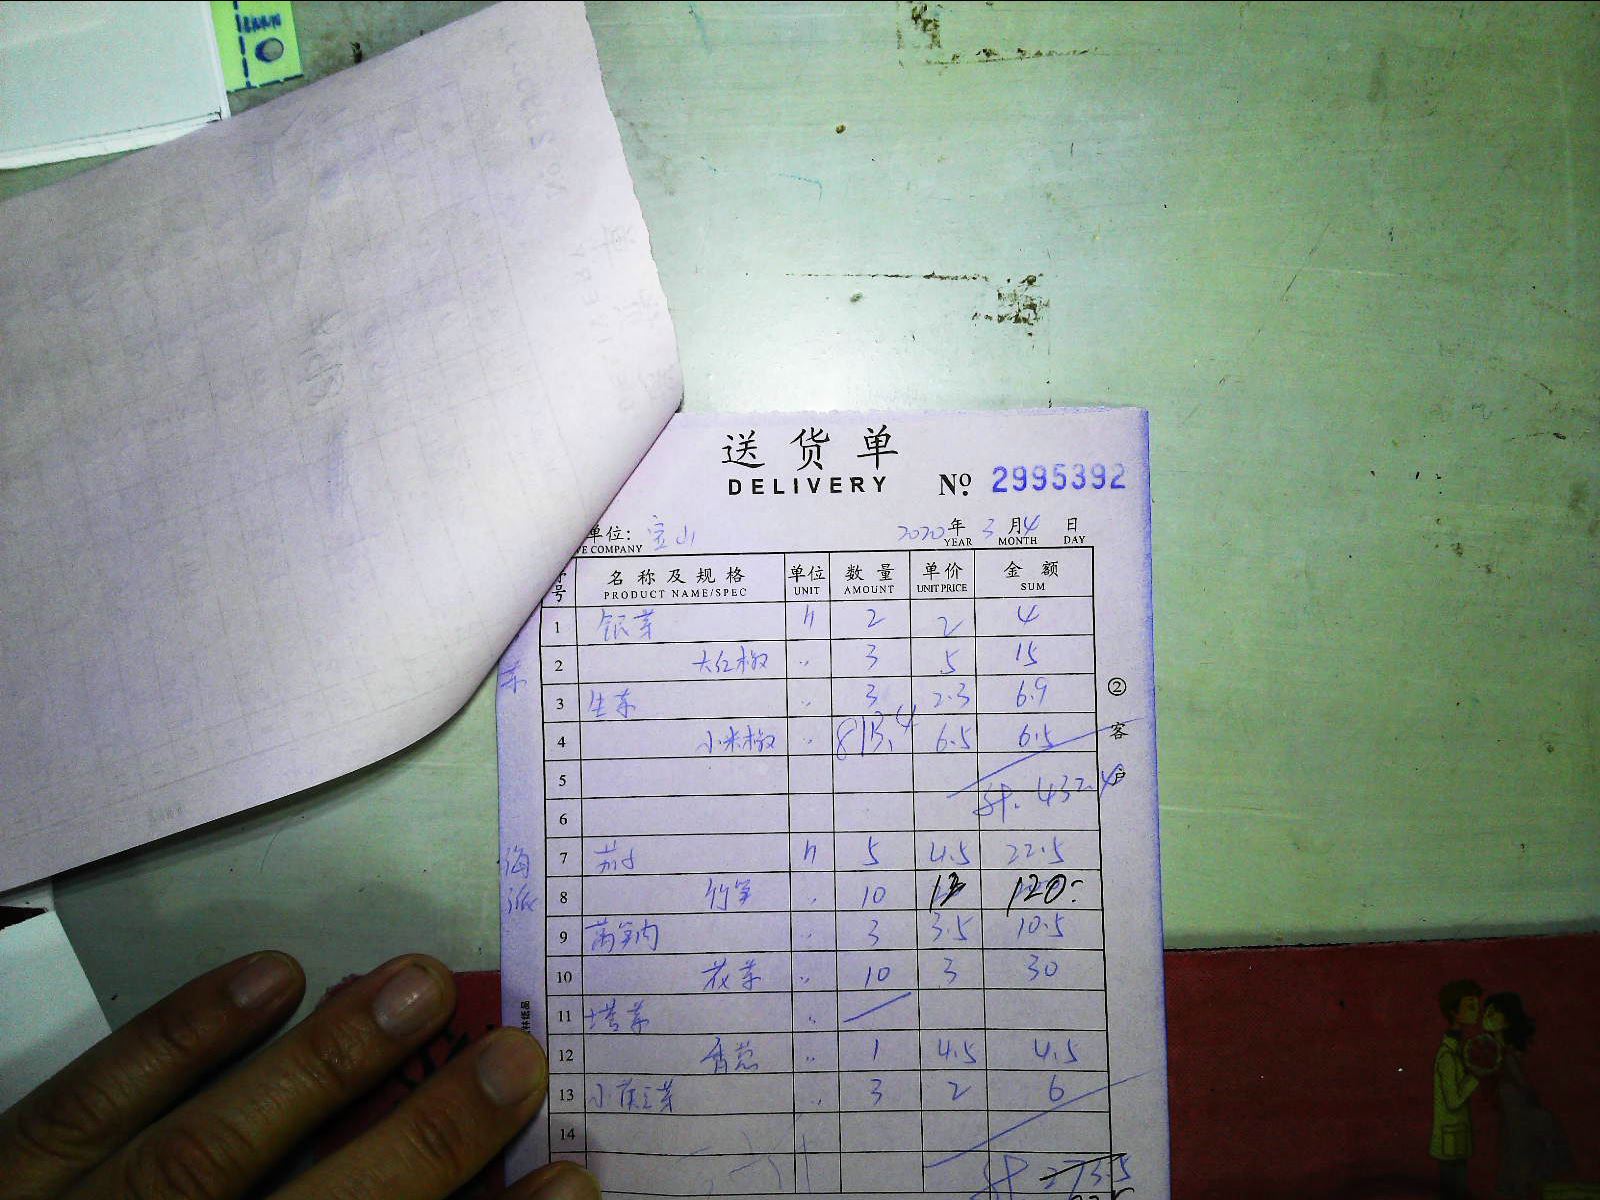 送货单
DELIVERY
No. 2995392
单位: 宝山 2020年 3月 4日
VE COMPANY YEAR MONTH DAY
号 名称及规格 单位 数量 单价 金额
PRODUCT NAME/SPEC UNIT AMOUNT UNIT PRICE SUM
1 银芽 〃 2 2 4
2 大红椒 〃 3 5 15
3 生菜 〃 3 2.3 6.9
4 小米椒 〃 6.5 6.5
5
6 432.4
7 〃 5 4.5 22.5
8 竹笋 〃 10 120
9 莴笋肉 〃 3 3.5 10.5
10 花菜 〃 10 3 30
11 塔菜 〃
12 香葱 〃 1 4.5 4.5
13 小黄豆芽 〃 3 2 6
14
273.5
②客户
海派